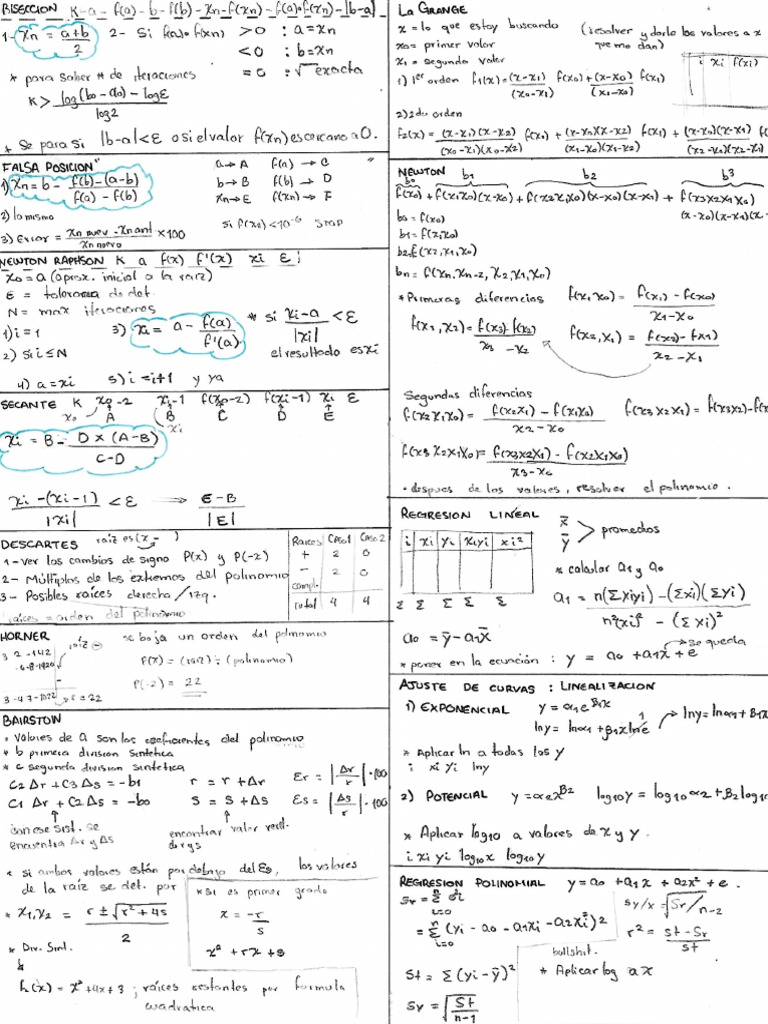 BISECCION K-a-f(a)-b-f(b)-xn-f(xn)-f(a)·f(xn)-|b-a|
1- xn = a+b / 2   2- Si f(a)·f(xn) >0 : a=xn
<0 : b=xn
=0 : √ exacta
* para saber # de iteraciones
K> log(b0-a0)-logε / log2
* Se para si |b-a|<ε o si el valor f(xn) es cercano a 0.
FALSA POSICION"
a→A f(a)→C
b→B f(b)→D
xn→E f(xn)→F
1) xn = b - f(b)-(a-b) / f(a)-f(b)
2) lo mismo
si f(x0)<10^-6 STOP
3) Error = xn nuev - xn ant / xn nuevo ×100
NEWTON RAPHSON K a f(x) f'(x) xi E
x0 = a (aprox. inicial a la raiz)
E = tolerancia de det.
N = max iteraciones
1) i=1   3) xi = a - f(a) / f'(a)   * si xi-a / |xi| < E
2) Si i≤N   el resultado es xi
4) a=xi   5) i=i+1 y ya
SECANTE K x0-2 xi-1 f(x0-2) f(xi-1) xi E
x0 A B C D E
xi
xi = B - D×(A-B) / C-D
xi-(xi-1) / |xi| < E → E-B / |E|
DESCARTES raiz es (x- )
Raices Caso1 Caso2
+ 2 0
- 2 0
compl.
total 4 4
1- ver los cambios de signo P(x) y P(-x)
2- Múltiplos de los extremos del polinomio
3- Posibles raíces derecha/izq.
raíces = orden del polinomio
HORNER se baja un orden del polinomio
raíz
P(x) = (raiz) · (polinomio)
P(-2) = 22
BAIRSTOW
• Valores de a son los coeficientes del polinomio
* b primera division sintetica
* c segunda division sintetica
C2 Δr + C3 Δs = -b1   r = r+Δr   Er = |Δr / r| ·100
C1 Δr + C2 Δs = -b0   S = S+Δs   Es = |Δs / s| ·100
con ese sist. se
encuentra Δr y Δs
encontrar valor verd.
de r y s
* si ambos valores están por debajo del Es, los valores
de la raiz se det. por
* x1,x2 = r±√r²+4s / 2
* si es primer grado
x = -r / s
x²+rx+s
* Div. Sint.
f2(x) = x²+4x+3 ; raíces restantes por formula
cuadratica
La GRANGE
x = lo que estoy buscando (resolver y darle los valores a x
que me dan)
x0 = primer valor
x1 = segundo valor
i xi f(xi)
1) 1er orden f1(x) = (x-x1) / (x0-x1) f(x0) + (x-x0) / (x1-x0) f(x1)
2) 2do orden
f2(x) = (x-x1)(x-x2) / (x0-x1)(x0-x2) f(x0) + (x-x0)(x-x2) / (x1-x0)(x1-x2) f(x1) + (x-x0)(x-x1) / (x2-x1)(x2-x0) f(
NEWTON b1 b2 b3
b0
f(x0) + f(x1x0)(x-x0) + f(x2x1x0)(x-x0)(x-x1) + f(x3x2x1x0)
(x-x0)(x-x1)(x
b0 = f(x0)
b1 = f(x1x0)
b2 = f(x2,x1,x0)
bn = f(xn,xn-2,x2,x1,x0)
* Primeras diferencias f(x1,x0) = f(x1)-f(x0) / x1-x0
f(x3,x2) = f(x3)-f(x2) / x3-x2   f(x2,x1) = f(x2)-f(x1) / x2-x1
Segundas diferencias
f(x2x1x0) = f(x2x1)-f(x1x0) / x2-x0   f(x3x2x1) = f(x3x2)-f(
f(x3x2x1x0) = f(x3x2x1)-f(x2x1x0) / x3-x0
• despues de los valores, resolver el polinomio.
REGRESION LINEAL
i xi yi xiyi xi²
Σ Σ Σ Σ Σ
x̄ ȳ > promedios
* calcular a1 y a0
a1 = n(Σxiyi)-(Σxi)(Σyi) / n²(xi)²-(Σxi)²
a0 = ȳ-a1x̄
Se queda
* poner en la ecuación: y = a0+a1x+e
AJUSTE DE CURVAS : LINEALIZACION
1) EXPONENCIAL y = α1e^β1x
lny = lnα1+β1x lne → lny = lnα1+β1x
1
* Aplicar ln a todas los y
i xi yi lny
2) POTENCIAL y = α2x^β2   log10y = log10α2+β2log10
* Aplicar log10 a valores de x y y.
i xi yi log10x log10y
REGRESION POLINOMIAL y = a0+a1x+a2x²+e.
Sr = Σ ei²
n
i=0
Sy/x = √Sr/n-2
= Σ (yi-a0-a1xi-a2xi²)²
n
i=0
r² = St-Sr / St
St = Σ(yi-ȳ)²
Sy = √St / n-1
bullshit.
* Aplicar log a x